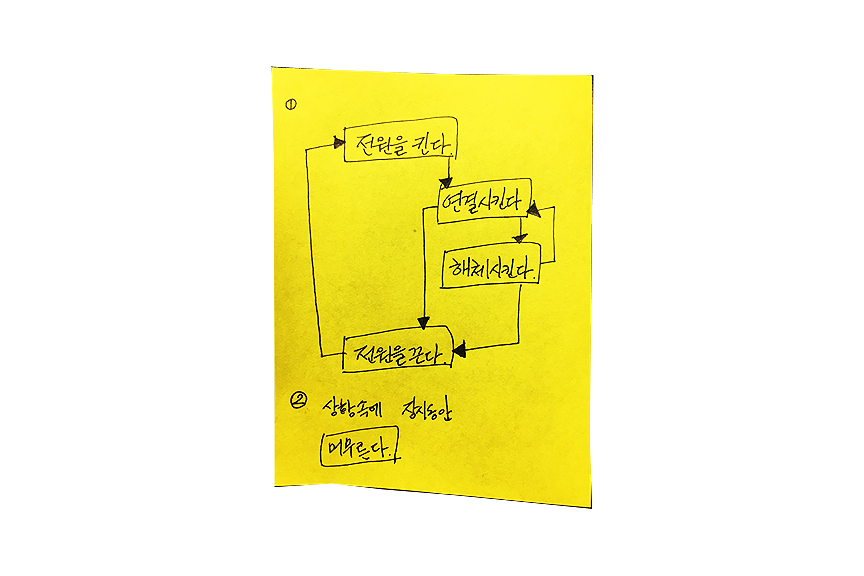 ①
전원을 킨다.
연결시킨다
해체시킨다.
전원을 끈다.
② 상황속에 잠시동안
머무른다.